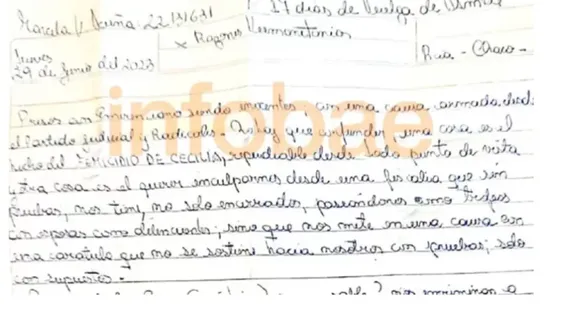 Marcela V. Acuña - 22131631
17 dias de Huelga de
x Razones Humanitarias
Jueves
29 de Junio del 2023
Rcia - Chaco -
infobae
Presos siendo inocentes con una causa armada desde
el Partido Judicial y Radicales - No hay que confundir una cosa es el
hecho del FEMICIDIO DE CECILIA, repudiable desde todo punto de vista
y otra cosa es el querer inculparnos desde una fiscalia que sin
pruebas, nos tiene no solo encerrados, paseandonos como
con esposas como delincuentes; sino que nos mete en una causa con
una caratula que no se sostiene hacia nosotros con pruebas; solo
con supuestos -